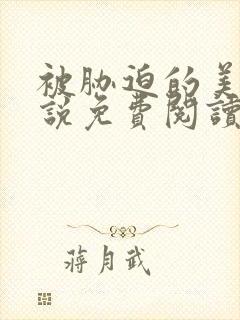 被胁迫的美
說免費閱讀
蔣月武